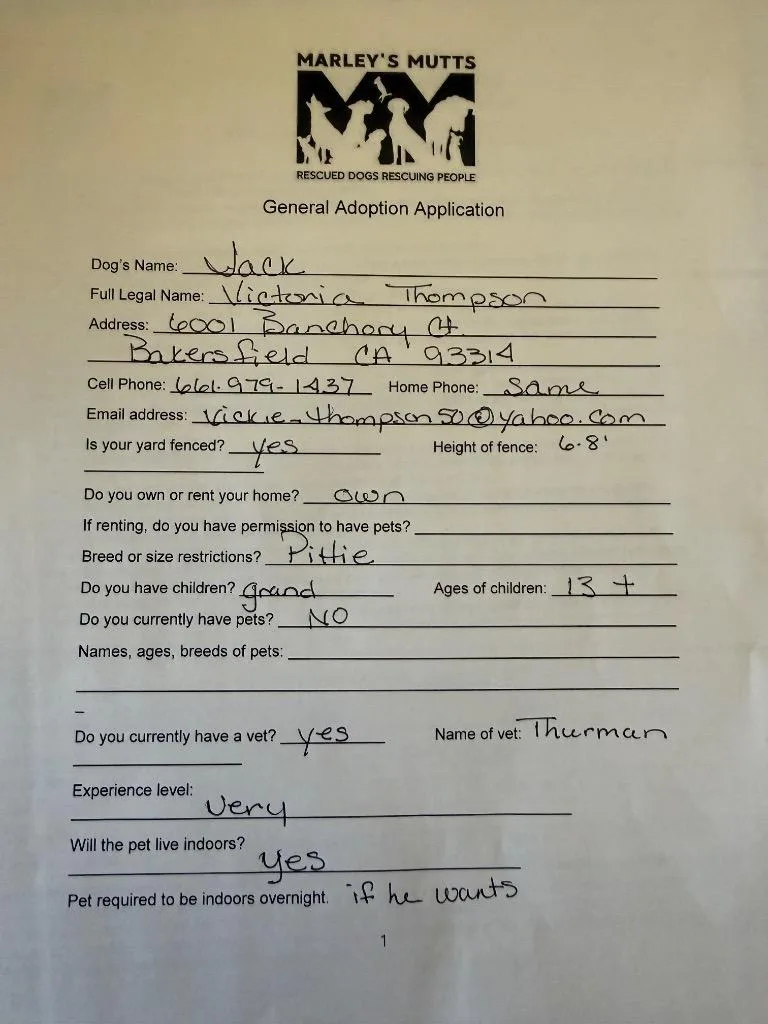 MARLEY'S MUTTS
RESCUED DOGS RESCUING PEOPLE
General Adoption Application
Dog's Name: Jack
Full Legal Name: Victoria Thompson
Address: 6001 Banchory Ct
Bakersfield CA 93314
Cell Phone: 661-979-1437 Home Phone: Same
Email address: Vickie_thompson50@yahoo.com
Is your yard fenced? yes Height of fence: 6-8'
Do you own or rent your home? own
If renting, do you have permission to have pets?
Breed or size restrictions? Pittie
Do you have children? grand Ages of children: 13 +
Do you currently have pets? NO
Names, ages, breeds of pets:
Do you currently have a vet? yes Name of vet: Thurman
Experience level:
Very
Will the pet live indoors?
yes
Pet required to be indoors overnight. if he wants
1